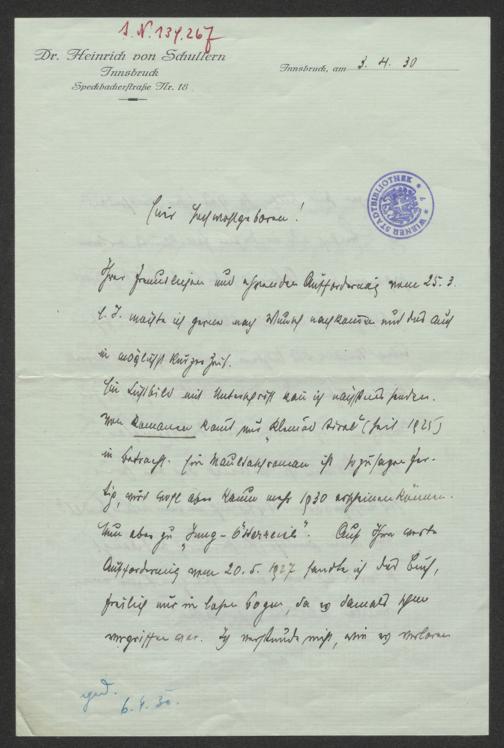 I. N. 134.267
Dr. Heinrich von Schullern
Innsbruck
Speckbacherstraße Nr. 18
Innsbruck, am 3. 4. 30
WIENER STADTBIBLIOTHEK
Euer Hochwohlgeboren!
Ihrer freundlichen und ehrenden Aufforderung vom 25. 3.
l. J. möchte ich gerne nach Wunsch nachkommen und das auch
in möglichst kurzer Zeit.
Ein Lichtbild mit Unterschrift kann ich nächstens senden.
Von Romanen kommt nur „Kleinod Tirol" (seit 1925)
in Betracht. Ein Roman ist sozusagen fer-
tig, wird wohl aber kaum mehr 1930 erscheinen können.
Nun aber zu „Jung-Österreich". Auf Ihre werte
Aufforderung vom 20. 5. 1927 sandte ich das Buch,
freilich nur in losen Bogen, da es damals schon
vergriffen war. Ich verstünde nicht, wie es verloren
6. 4. 30.